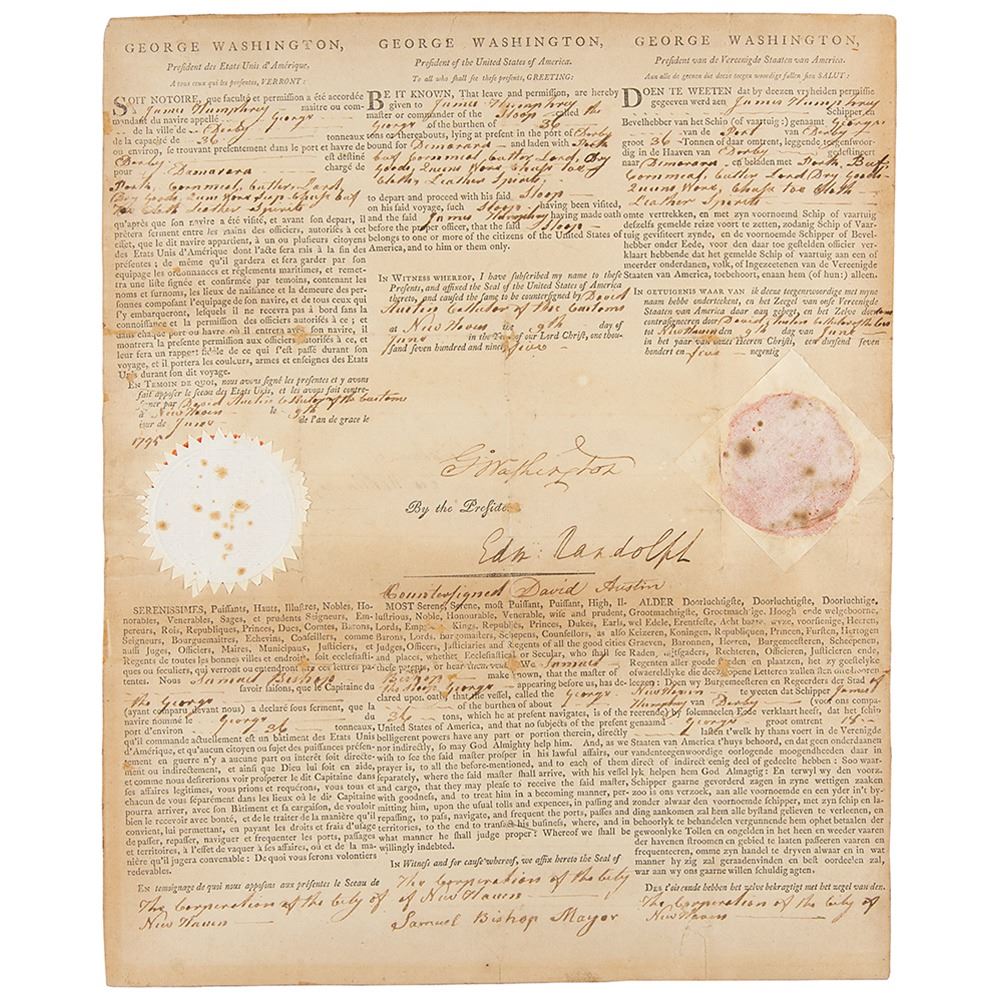 GEORGE WASHINGTON,
Président des Etats Unis d'Amérique,
A tous ceux qui les présentes, VERRONT:
SOIT NOTOIRE, que faculté et permission a été accordée
à James Humphrey maitre ou com-
mandant du navire appellé George
de la ville de Derby
de la capacité de 36 tonneaux
ou environ, se trouvant presentement dans le port et havre de
Derby et destiné
pour Demarara chargé de
Pork, Cornmeal, butter, Lard
Dry Goods, Leather Spirits
qu'après que son navire a été visité, et avant son départ, il
prêtera serment entre les mains des officiers, autorisés à cet
effet, que le dit navire appartient, à un ou plusieurs citoyens
des Etats Unis d'Amérique dont l'acte sera mis à la fin des
présentes; de même qu'il gardera et fera garder par son
équipage les ordonnances et règlemens maritimes, et remet-
tra une liste signée et confirmée par temoins, contenant les
noms et surnoms, les lieux de naissance et la demeure des per-
sonnes composant l'equipage de son navire, et de tous ceux qui
s'y embarqueront, lesquels il ne recevra pas à bord sans la
connoissance et la permission des officiers autorisés à ce; et
dans chaque port ou havre où il entrera avec son navire, il
montrera la présente permission aux officiers autorisés à ce, et
leur fera un rapport fidèle de ce qui s'est passé durant son
voyage, et il portera les couleurs, armes et enseignes des Etats
Unis durant son dit voyage.
EN TEMOIN DE QUOI, nous avons signé les presentes et y avons
fait apposer le sceau des Etats Unis, et les avons fait contre-
signer par David Austin Collector of the Customs
à New Haven le 9th
jour de June de l'an de grace le
1795
GEORGE WASHINGTON,
President of the United States of America.
To all who shall see these presents, GREETING:
BE IT KNOWN, That leave and permission, are hereby
given to James Humphrey
master or commander of the Sloop called the
George of the burthen of 36
tons or thereabouts, lying at present in the port of Derby
bound for Demarara and laden with Pork
Cornmeal, butter, Lard, Dry
Goods, Queens Ware,
Leather Spirits,
to depart and proceed with his said Sloop
on his said voyage, such Sloop having been visited,
and the said James Humphrey having made oath
before the proper officer, that the said Sloop
belongs to one or more of the citizens of the United States of
America, and to him or them only.
IN WITNESS WHEREOF, I have subscribed my name to these
Presents, and affixed the Seal of the United States of America
thereto, and caused the same to be countersigned by David
Austin Collector of the Customs
at New Haven the 9th day of
June in the Year of our Lord Christ, one thou-
sand seven hundred and ninety five
GEORGE WASHINGTON,
President van de Vereenigde Staaten van America.
Aan alle de geenen die deeze tegen woordige sullen sien SALUT:
DOEN TE WEETEN dat by deezen vryheiden permissie
gegeeven werd aen James Humphrey
Schipper en
Bevelhebber van het Schip (of vaartuig:) genaamt George
van de Port van Derby
groot 36 Tonnen of daar omtrent, leggende tegenswoor-
dig in de Haaven van Derby gedestineert
naar Demarara en beladen met Pork, Beef
Cornmeal, butter Lard Dry Goods
Queens Ware,
Leather Spirits
omte vertrekken, en met zyn voornoemd Schip of vaartuig
desselfs gemelde reize voort te zetten, zodanig Schip of Vaar-
tuig gevisiteert zynde, en de voornoemde Schipper of Bevel-
hebber onder Eede, voor den daar toe gestelden officier ver-
klaart hebbende dat het gemelde Schip of vaartuig aan een of
meerder onderdanen, volk, of Ingezeetenen van de Vereenigde
Staaten van America, toebehoort, enaan hem (of hun:) alleen.
IN GETUIGENIS WAAR VAN ik deeze tegenwoordige met myne
naam hebbe onderteekent, en het Zeegel van onse Vereenigde
Staaten van America daar aan gehegt, en het Zelve doen
contrasigneeren door David Austin Collector of the Customs
tot New Haven den 9th dag van June
in het jaar van onzes Heeren Christi, een duysend seven
hondert en five negentig
G. Washington
By the President
Edm: Randolph
Countersigned David Austin
SERENISSIMES, Puissants, Hauts, Illustres, Nobles, Ho-
norables, Venerables, Sages, et prudents Seigneurs, Em-
pereurs, Rois, Republiques, Princes, Ducs, Comtes, Barons,
Seigneurs, Bourguemaitres, Echevins, Conseillers, comme
aussi Juges, Officiers, Maires, Municipaux, Justiciers, et
Regents de toutes les bonnes villes et endroits, soit ecclesiasti-
ques ou seculiers, qui verront ou entendront ces lettres pa-
tentes. Nous Samuel Bishop
savoir faisons, que le Capitaine du
the George
(ayant comparu devant nous) a déclaré sous serment, que la
navire nommé le George du
port d'environ 36 tonneaux,
qu'il commande actuellement est un bâtiment des Etats Unis
d'Amérique, et qu'aucun citoyen ou sujet des puissances présen-
tement en guerre n'y a aucun part ou intérêt soit directe-
ment ou indirectement, et ainsi que Dieu lui soit en aide,
et comme nous desirerions voir prosperer le dit Capitaine dans
ses affaires legitimes, vous prions et requérons, vous tous et
chacun de vous séparément dans les lieux où le dit Capitaine
pourra arriver, avec son Bâtiment et sa cargaison, de vouloir
bien le recevoir avec bonté, et de le traiter de la manière qu'il
convient, lui permettant, en payant les droits et frais d'usage
de passer, repasser, naviguer et frequenter les ports, passages
et territoires, à l'effet de vaquer à ses affaires, où et de la ma-
nière qu'il jugera convenable: De quoi vous serons volontiers
redevables.
En temoignage de quoi nous apposons aux présentes le Sceau de
The Corporation of the City of
New Haven
MOST Serene, Serene, most Puissant, Puissant, High, Il-
lustrious, Noble, Honourable, Venerable, wise and prudent,
Lords, Emperors, Kings, Republics, Princes, Dukes, Earls,
Barons, Lords, Burgomasters, Schepens, Counsellors, as also
Judges, Officers, Justiciaries and Regents of all the good cities
and places, whether Ecclesiastical or Secular, who shall see
these patents, or hear them read: We Samuel
Bishop make known, that the master of
the Sloop George appearing before us, has de-
clared upon oath that the vessel, called the George
of the burthen of about
36 tons, which he at present navigates, is of the
United States of America, and that no subjects of the present
belligerent powers have any part or portion therein, directly
nor indirectly, so may God Almighty help him. And, as we
wish to see the said master prosper in his lawful affairs, our
prayer is, to all the before-mentioned, and to each of them
separately, where the said master shall arrive, with his vessel
and cargo, that they may please to receive the said master,
with goodness, and to treat him in a becoming manner, per-
mitting him, upon the usual tolls and expences, in passing and
repassing, to pass, navigate, and frequent the ports, passes and
territories, to the end to transact his business, where, and in
what manner he shall judge proper: Whereof we shall be
willingly indebted.
In Witness and for cause whereof, we affix hereto the Seal of
The Corporation of the City
of New Haven
Samuel Bishop Mayor
ALDER Doorluchtigste, Doorluchtige, Doorluchtige,
Grootmachtigste, Grootmachtige, Hoogh ende welgeboorne,
wel Edele, Erentfeste, Acht baare, wyze, voorsienige, Heeren,
Keizeren, Koningen, Republiquen, Princen, Fursten, Hertogen
Graeven, Baronnen, Heeren, Burgemeesteren, Scheepenen,
Raden, alsmede Rechteren, Officieren, Justicieren ende,
Regenten aller goede steden en plaatzen, het zy geestelyke
ofwaereldlyke die deeze opene Letteren zullen sien ofte hooren
leezen: Doen wy Burgemeesteren en Regeerders der Stad of
New Haven te weeten dat Schipper James
Humphrey van Derby (voor ons compa-
reerende) by solemneelen Eede verklaart heeft, dat het schip
genaamd George groot omtrent
lasten t'welk hy thans voert in de Vereenigde
Staaten van America t'huys behoord, en dat geen onderdaanen
vandentegenswoordigen oorlogende moogendheden daar in
direct of indirect eenig deel of gedeelte hebben: Soo waar-
lyk helpen hem God Almagtig: En terwyl wy den voorz.
Schipper gaarne gevordert zagen in zyne wettigen zaaken
zoo is ons verzoek, aan alle voornoemde en een yder in't by-
zonder alwaar den voornoemde schipper, met zyn schip en la-
ding aankomen zal hem alle bystand gelieven te verleenen, en
behoorlyk te behandelen vergunnende hem ophet betaalen der
gewoonlyke Tollen en ongelden in het heen en weeder vaaren
der havenen stroomen en gebied te laaten passeeren vaaren en
frequenteeren, omme zyn handel te dryven alwaar en in wat
manner hy zig zal geraadenvinden en best oordeelen zal,
war aan wy ons gaarne willen schuldig agten.
Des t'oirconde hebben het zelve bekragtigt met het zegel van den.
The Corporation of the City of
New Haven